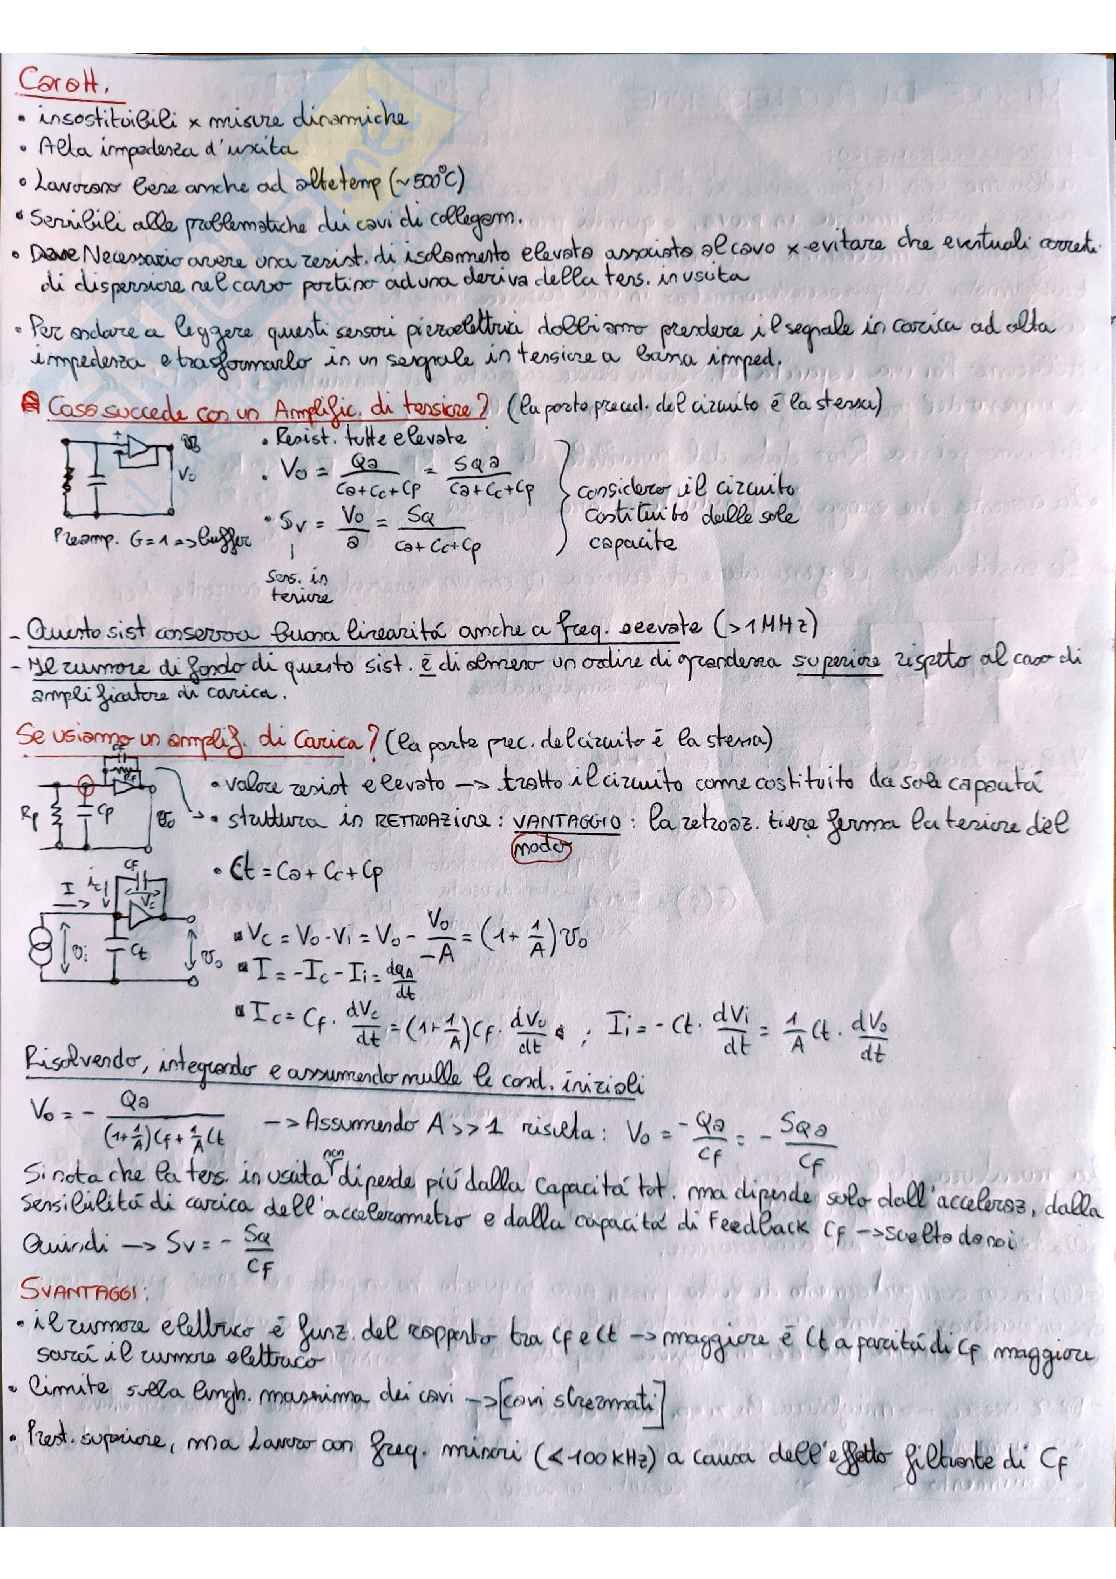 Caratt.
• insostituibili x misure dinamiche
• Alta impedenza d'uscita
• Lavorano bene anche ad alte temp (~500°C)
• Sensibili alle problematiche dei cavi di collegam.
• Necessario avere una resist. di isolamento elevata associata al cavo x evitare che eventuali corrent.
di dispersione nel cavo portino ad una deriva della tens. in uscita
• Per andare a leggere questi sensori piezoelettrici dobbiamo prendere il segnale in carica ad alta
impedenza e trasformarlo in un segnale in tensione a bassa imped.
Cosa succede con un Amplific. di tensione? (la parte preced. del circuito é la stessa)
• Resist. tutte elevate
+ - V0
• V0 = Qa / (Ca+Cc+Cp) = SQ a / (Ca+Cc+Cp)
considero il circuito
costituito dalle sole
capacita
• Sv = V0 / a = SQ / (Ca+Cc+Cp)
Preamp. G=1 => buffer
Sens. in
tensione
- Questo sist conserva buona linearitá anche a freq. elevate (>1MHz)
- Il rumore di fondo di questo sist. é di almeno un ordine di grandezza superiore rispetto al caso di
amplificatore di carica.
Se usiamo un amplif. di Carica? (la parte prec. del circuito é la stessa)
Rp Cp v0
• valore resist elevato -> tratto il circuito come costituito da sole capacitá
• struttura in RETROAZIONE: VANTAGGIO: la retroaz. tiene ferma la tensione del
nodo
• Ct = Ca + Cc + Cp
I ic Cf Vc vi Ct v0
▪ Vc = V0 - Vi = V0 - V0 / -A = (1 + 1/A) v0
▪ I = -Ic - Ii = dqA / dt
▪ Ic = Cf · dVc/dt = (1+1/A) Cf · dV0/dt ; Ii = - Ct · dVi/dt = 1/A Ct · dV0/dt
Risolvendo, integrando e assumendo nulle le cond. iniziali
V0 = - Qa / ((1+1/A)Cf + 1/A Ct) -> Assumendo A>>1 risulta: V0 = -Qa / Cf = - SQ a / Cf
Si nota che la tens. in uscita non dipende piú dalla capacitá tot. ma dipende solo dall'acceleraz, dalla
sensibilitá di carica dell'accelerometro e dalla capacitá di Feedback Cf -> scelta da noi
Quindi -> Sv = - SQ / CF
SVANTAGGI:
• il rumore elettrico é funz. del rapporto tra Cf e Ct -> maggiore é Ct a paritá di Cf maggiore
sará il rumore elettrico
• limite sulla lungh. massima dei cavi -> [cavi schermati]
• Prest. superiore, ma lavoro con freq. minori (<100 kHz) a causa dell'effetto filtrante di Cf